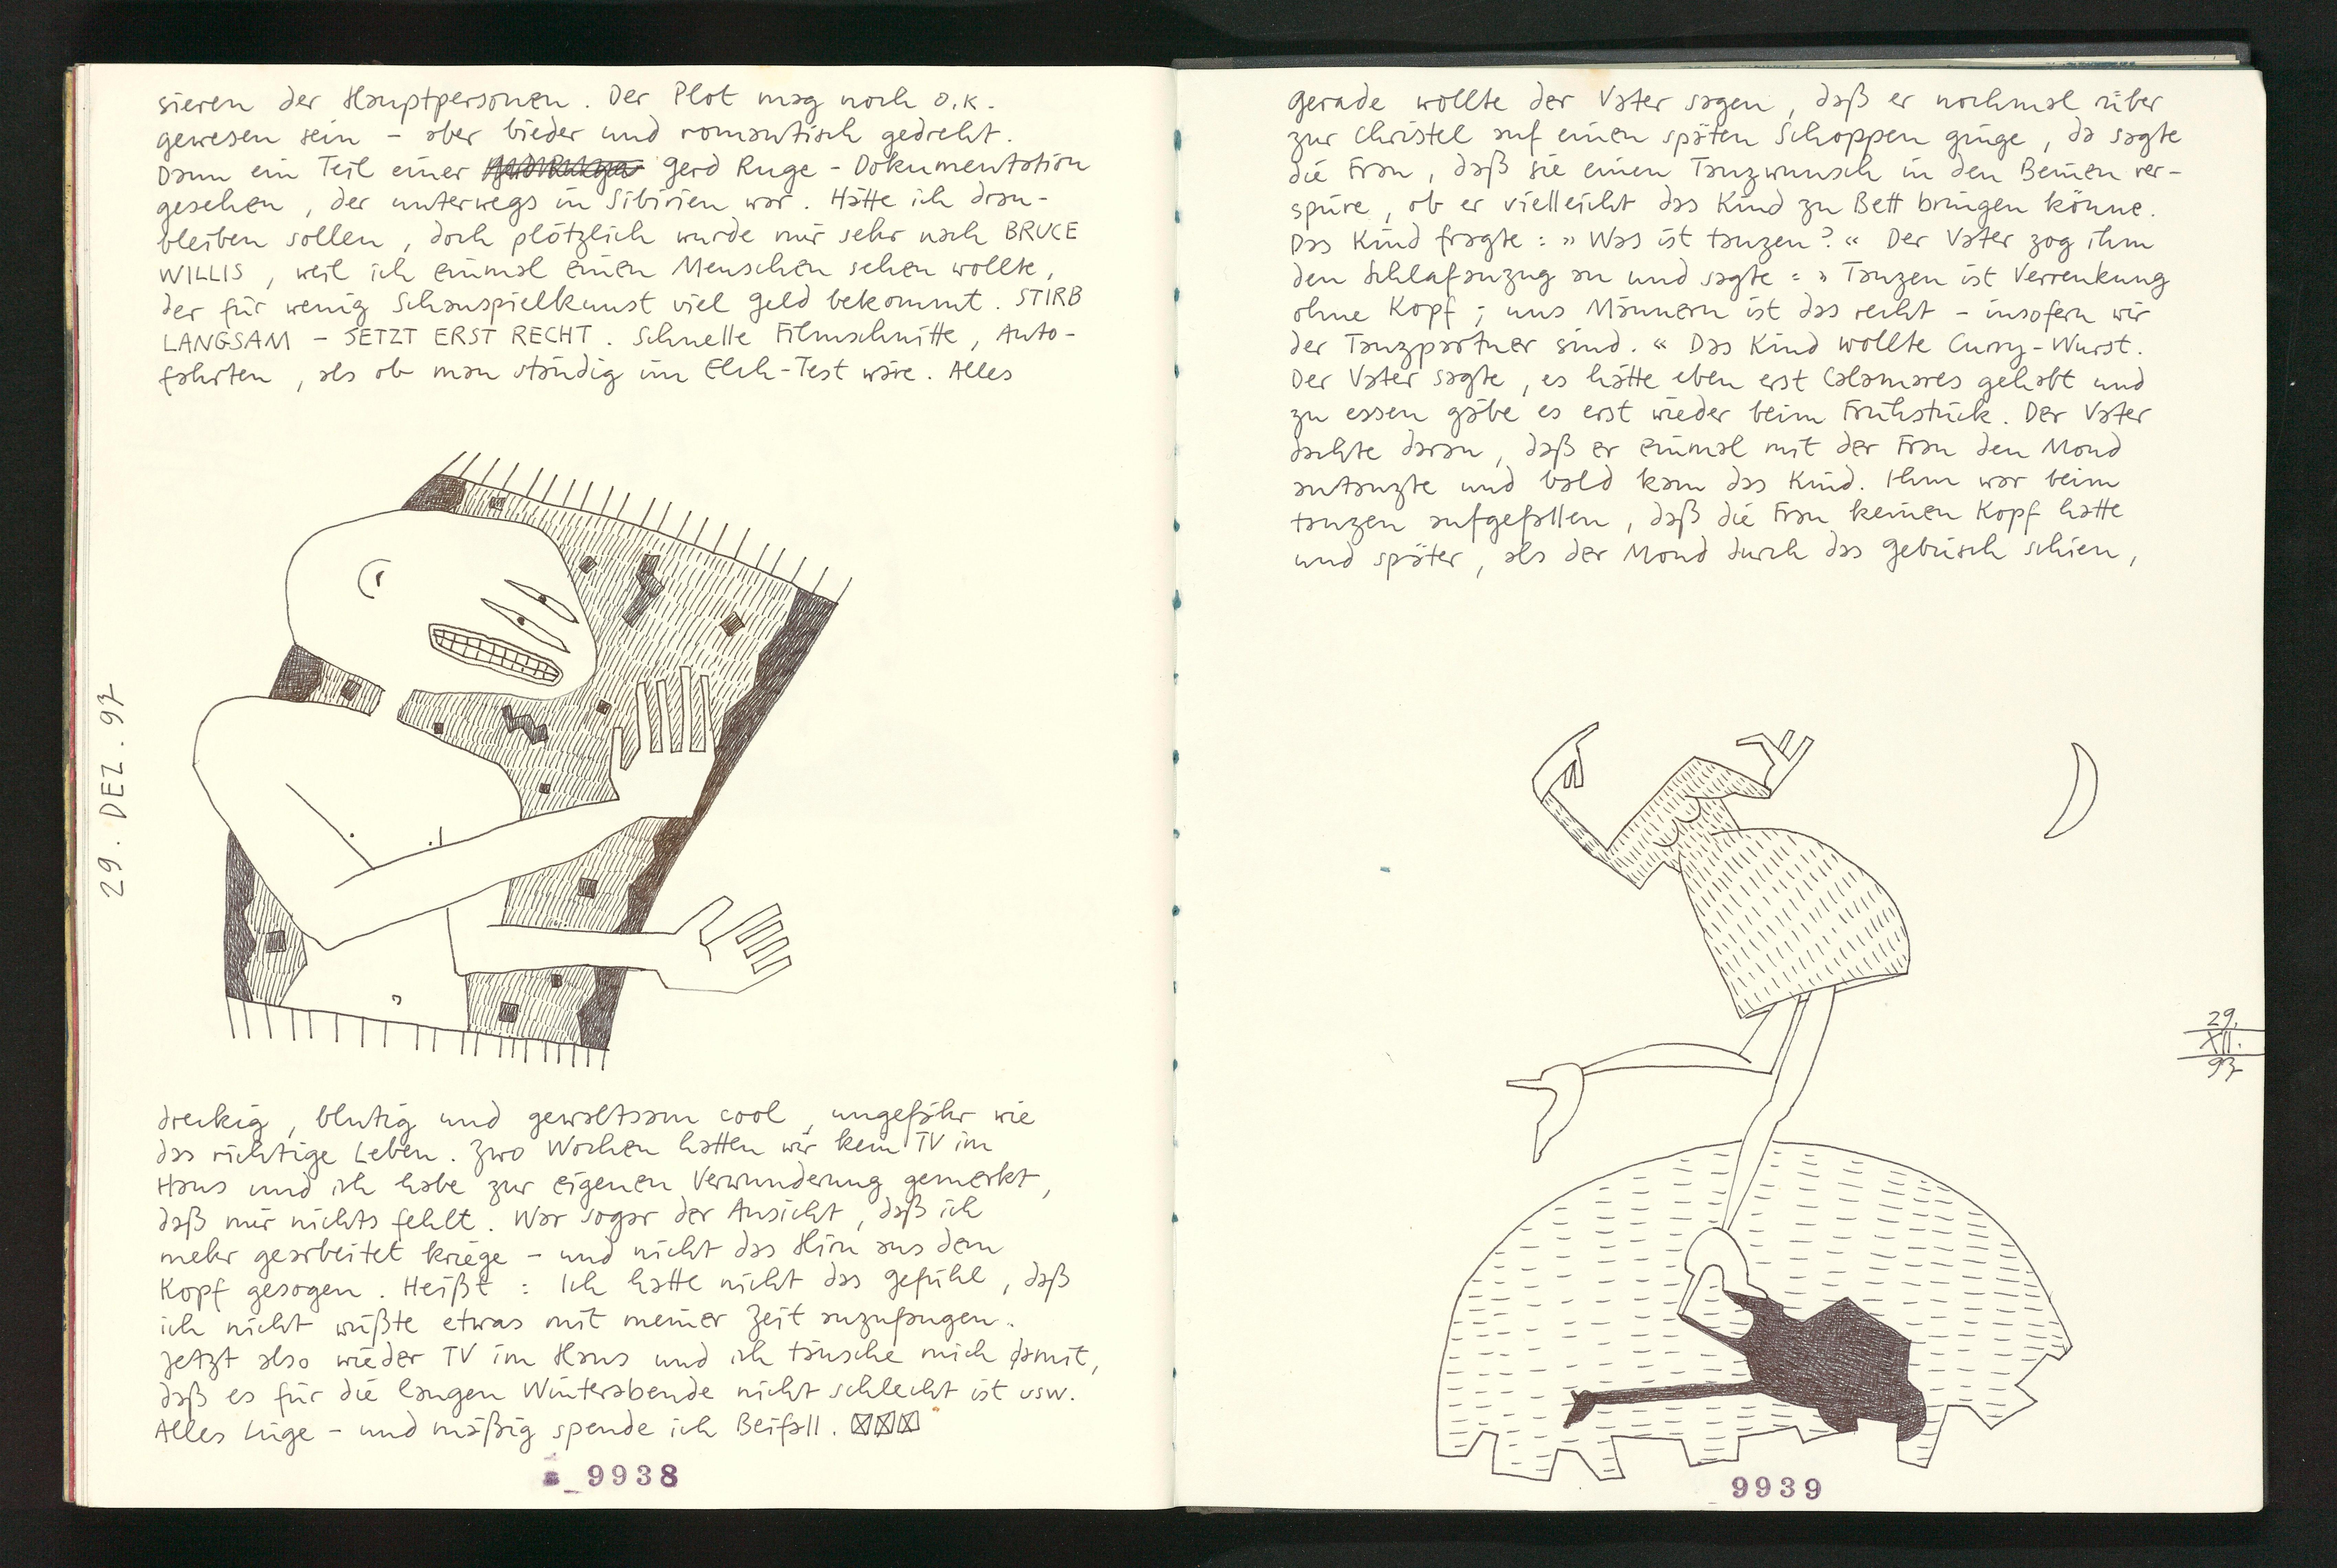 sieren der Hauptpersonen. Der Plot mag noch o.k.
gewesen sein – aber bieder und romantisch gedreht.
Dann ein Teil einer Gerd Ruge - Dokumentation
gesehen, der unterwegs in Sibirien war. Hätte ich dran-
bleiben sollen, doch plötzlich wurde mir sehr nach BRUCE
WILLIS, weil ich einmal einen Menschen sehen wollte,
der für wenig Schauspielkunst viel Geld bekommt. STIRB
LANGSAM – JETZT ERST RECHT. Schnelle Filmschnitte, Auto-
fahrten, als ob man ständig im Elch-Test wäre. Alles
29. DEZ. 97
dreckig, blutig und gewaltsam cool, ungefähr wie
das richtige Leben. Zwo Wochen hatten wir kein TV im
Haus und ich habe zur eigenen Verwunderung gemerkt,
daß mir nichts fehlt. War sogar der Ansicht, daß ich
mehr gearbeitet kriege – und nicht das Hirn aus dem
Kopf gesogen. Heißt : Ich hatte nicht das Gefühl, daß
ich nicht wüßte etwas mit meiner Zeit anzufangen.
Jetzt also wieder TV im Haus und ich täusche mich damit,
daß es für die langen Winterabende nicht schlecht ist usw.
Alles Lüge – und mäßig spende ich Beifall.
9938
Gerade wollte der Vater sagen, daß er nochmal rüber
zur Christel auf einen späten Schoppen ginge, da sagte
die Frau, daß sie einen Tanzwunsch in den Beinen ver-
spüre, ob er vielleicht das Kind zu Bett bringen könne.
Das Kind fragte : » Was ist tanzen? « Der Vater zog ihm
den Schlafanzug an und sagte : » Tanzen ist Verrenkung
ohne Kopf ; uns Männern ist das recht – insofern wir
der Tanzpartner sind. « Das Kind wollte Curry-Wurst.
Der Vater sagte, es hätte eben erst Calamares gehabt und
zu essen gäbe es erst wieder beim Frühstück. Der Vater
dachte daran, daß er einmal mit der Frau den Mond
antanzte und bald kam das Kind. Ihm war beim
tanzen aufgefallen, daß die Frau keinen Kopf hatte
und später, als der Mond durch das Gebüsch schien,
29.
XII.
97
9939